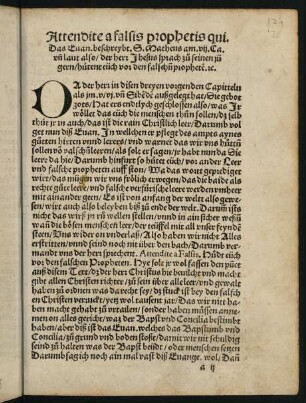 Attendite a falsis prophetis qui.
Das Euan. beschreybt. S. Matheus am .vij. Ca.
vñ laut also / der herr Jhesus sprach zů seinen jũ
gern / hütent eüch vor den falschñ prophetē. ꝛc.
DA der herr in disen dreyen vorgenden Capitteln
als jm .v. vj. vñ
gozzes / Hat ers endtlych geschlossen also / was Jr
wöllet das eüch die menschen thůn sollen / dz selb
thůt jr in auch / das ist die rain Christlich leer / Darumb vol
get nun diß Euan. In wellichem er pflegt des ampts aynes
gůten herren vnnd lerers / vnd warnet das wir vns hůttñ
sollen vō falschñ leeren / als solt er sagen / jr habt nun da Sie
leer / da hie / Darumb hinfurt so hütet eüch / vor ander Leer
vnd falsche propheten auff ston / Wa das wort gepredigt
wirt / das mügen wir vns frölich erwegen / das die baide als
rechte gůte leer / vnd falsche verfürische leerer werden vmbher
mit ainander gen / Es ist von anfang der welt also gewe-
sen / wirt auch also beleyben biß zů ende der welt. Darum ists
nicht das wir jn rů wellen stellen / vnnd in ain sicher wesen
wan die bösen menschen leer / der teüffel mit all vnser feyndt
steen / Vns wider on vnderlaß / Also haben wir nicht Alles
erstritten / vnnd seindt noch nit vber den bach / Darumb ver-
mant vns der herr sprechent. Attendite a Falsis. Hüdt eüch
vor den falschen Propheten. Hye sole jr wol fassen den püct
auß disem Text / dz der herr Christus hie beuilcht vnd macht
gibt allen Christen richter / zů sein vber alle leer / vnd gewalt
haben zů ordnen was da recht sey /
en Christen verruckt / yetz wol tausent jar / Das wir nit ha-
ben macht gehabt zů vrtailen / sonder haben müssen anne-
men on alles gericht / waz der Bapst vnd Concilia bestimbt
haben / aber diß ist das Euan. welches das Bapstumb vnd
Concilia / zů grund vnd boden stoßt / damit wir nit schuldig
seind zů halten was der Bapst beüdt / oder menschen setzen
Darumb sag ich noch ain mal vast diß Euange. wol / Dañ
a ij